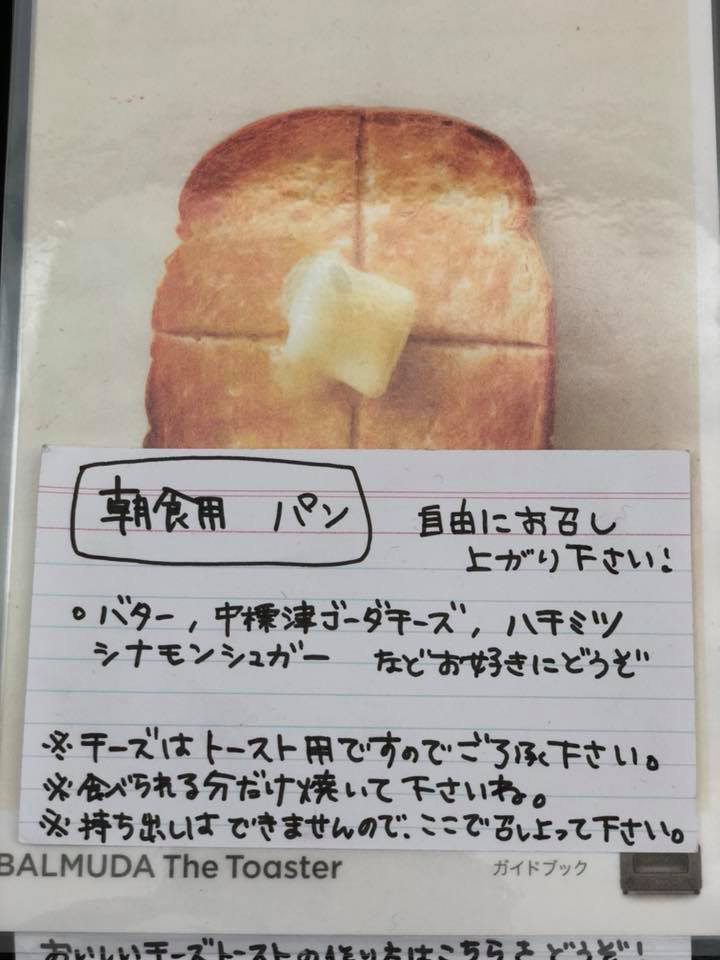 朝食用　パン
自由にお召し
上がり下さい!
○バター, 中標津ゴーダチーズ, ハチミツ
シナモンシュガー　などお好きにどうぞ
※チーズはトースト用ですのでご了承下さい。
※食べられる分だけ焼いて下さいね。
※持ち出しはできませんので、ここで召し上って下さい。
BALMUDA The Toaster
ガイドブック
おいしいチーズトーストの作り方はこちらをどうぞ!